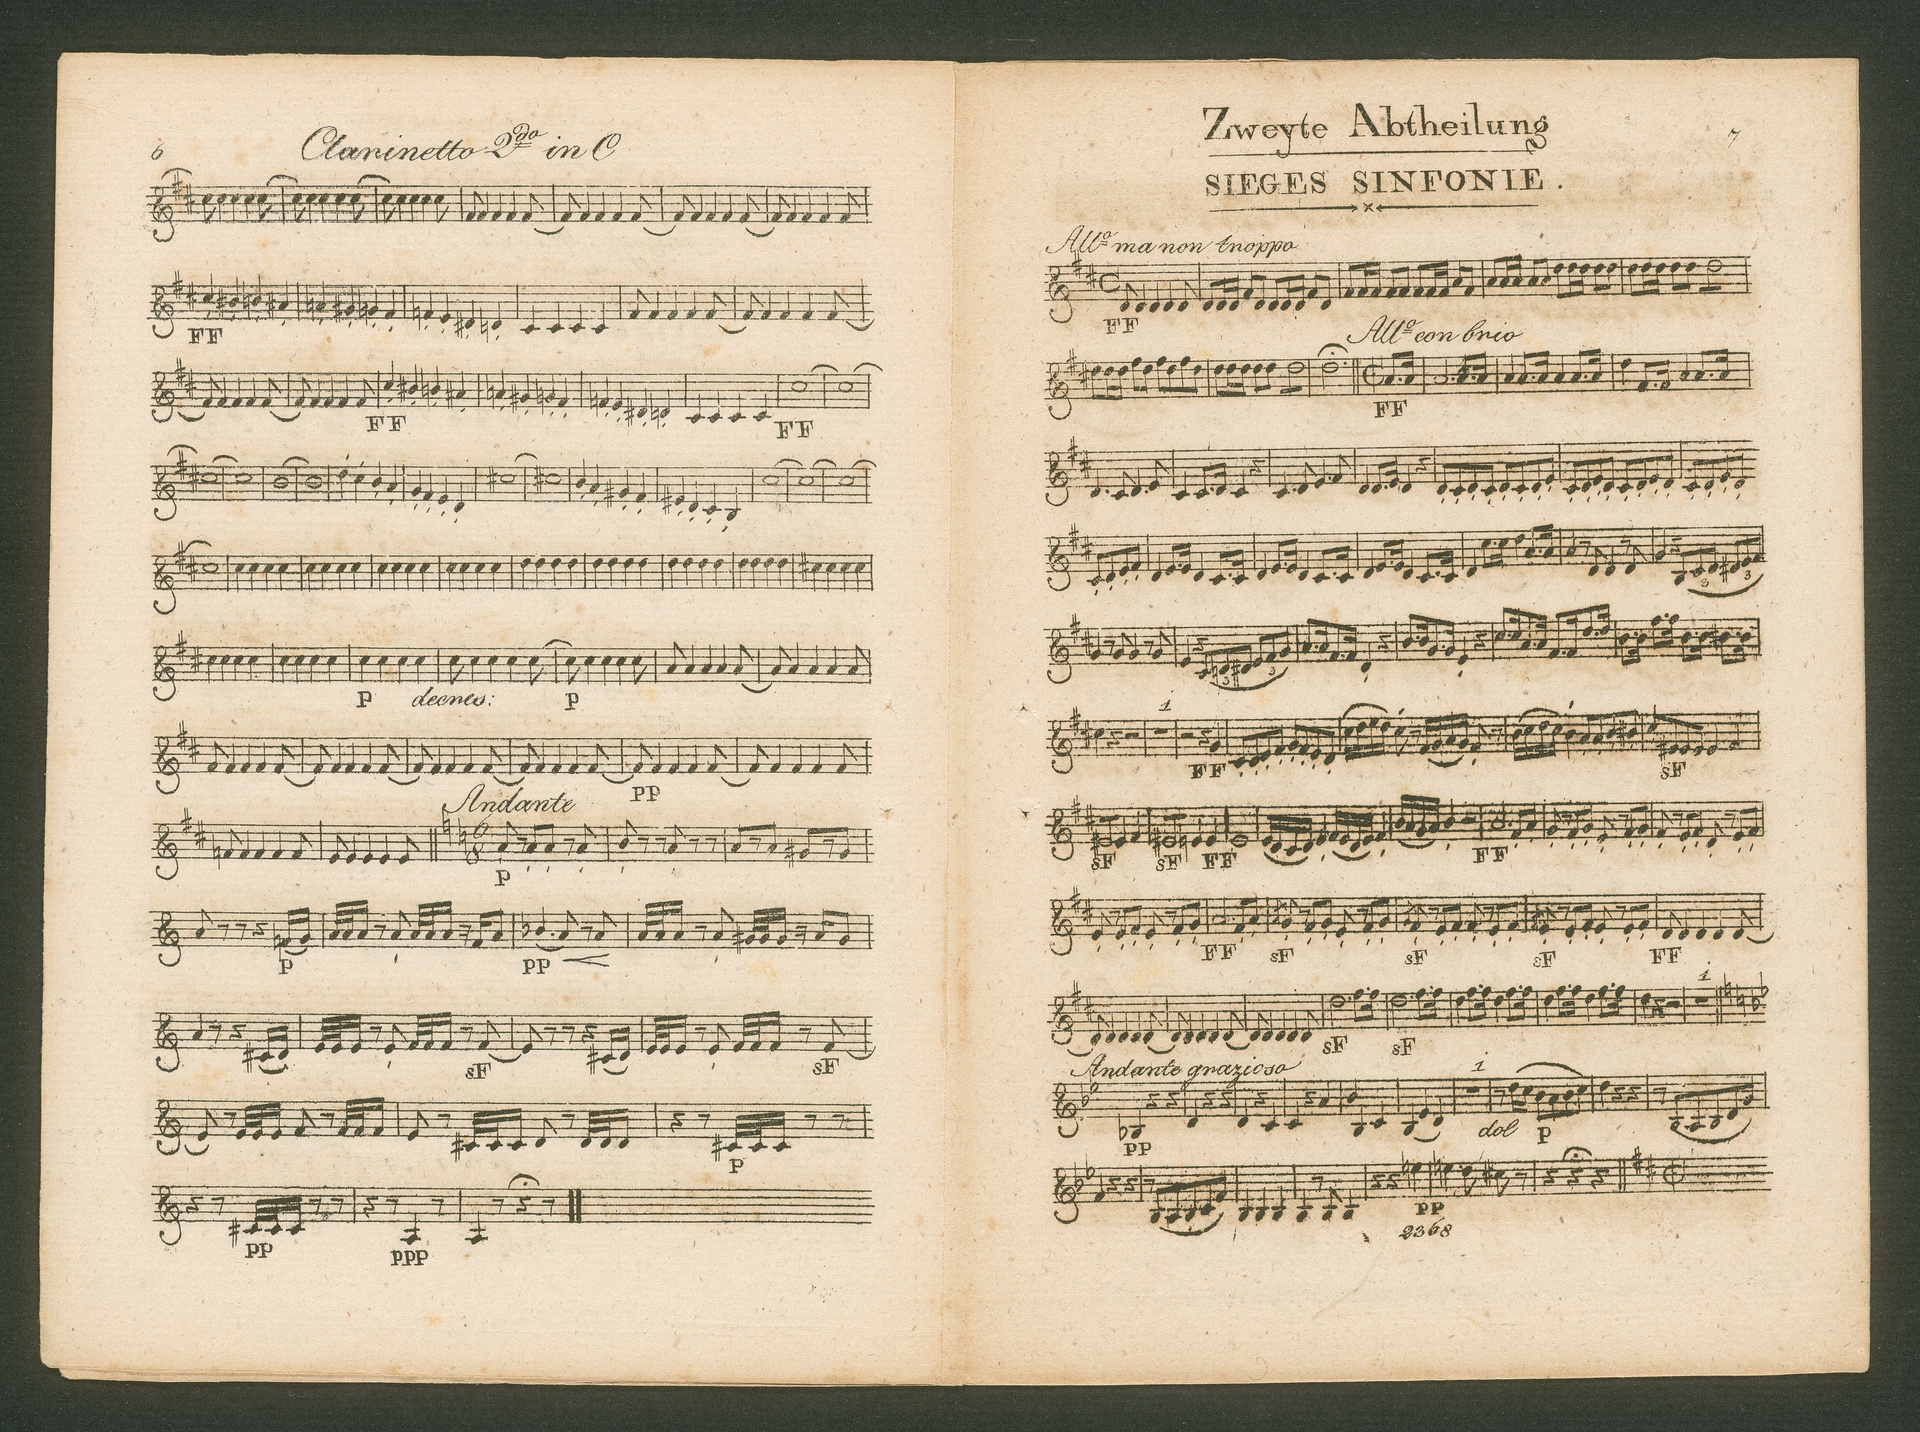 6
Clarinetto 2do in C
FF
FF
FF
p decres: p
pp
Andante
p
p pp
sF sF
p
pp ppp
7
Zweyte Abtheilung
SIEGES SINFONIE.
Allo ma non troppo
FF
Allo con brio
FF
3 3
3 3
1
FF sF
sF sF FF FF
FF sF sF sF FF
1
sF sF
Andante grazioso
1
pp dol p
pp
2368